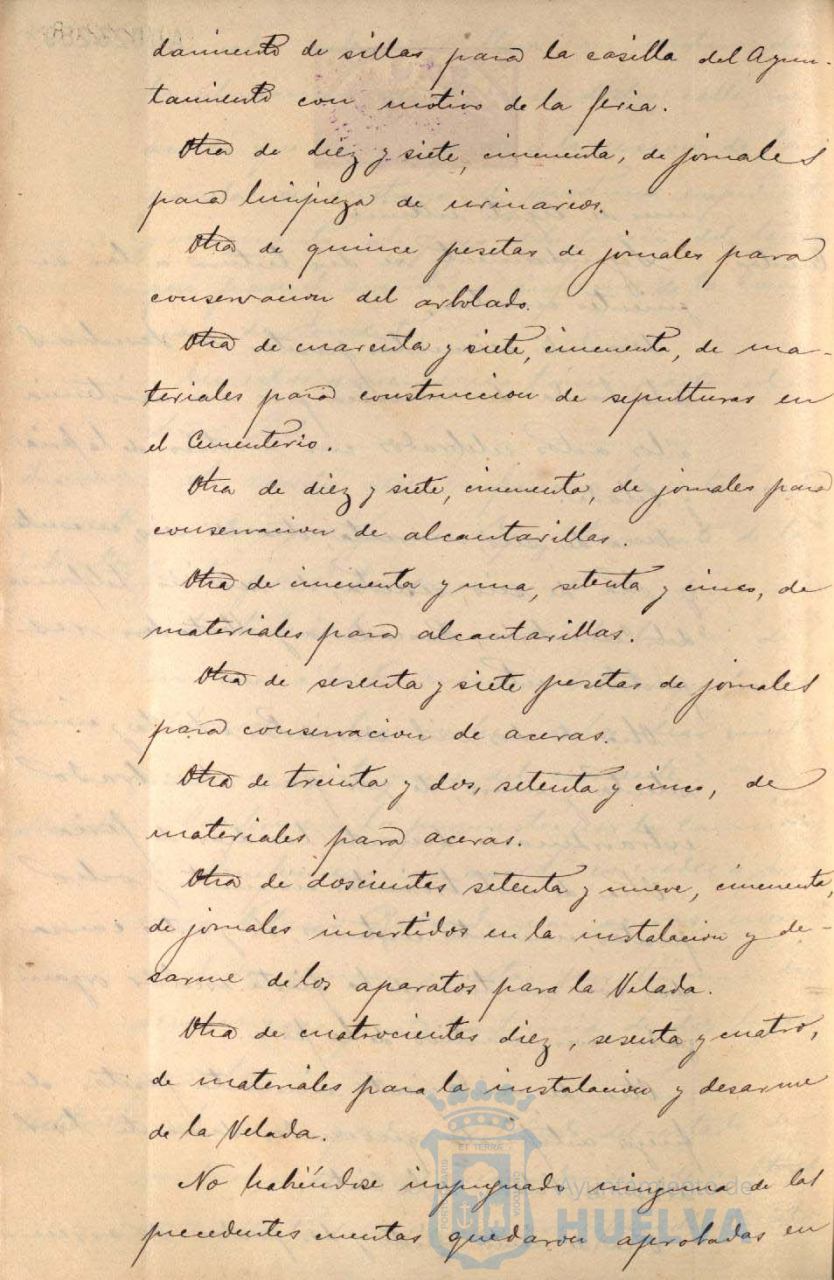 damiento de sillas para la casilla del Ayun-
tamiento con motivo de la feria.
Otra de diéz y siete, cincuenta, de jornales
para limpieza de urinarios.
Otra de quince pesetas de jornales para
conservacion del arbolado.
Otra de cuarenta y siete, cincuenta, de ma-
teriales para construccion de sepulturas en
el Cementerio.
Otra de diéz y siete, cincuenta, de jornales para
conservacion de alcantarillas.
Otra de cincuenta y una, setenta y cinco, de
materiales para alcantarillas.
Otra de sesenta y siete pesetas de jornales
para conservacion de aceras.
Otra de treinta y dos, setenta y cinco, de
materiales para aceras.
Otra de doscientas setenta y nueve, cincuenta,
de jornales invertidos en la instalacion y de-
sarme de los aparatos para la Velada.
Otra de cuatrocientas diez, sesenta y cuatro,
de materiales para la instalacion y desarme
de la Velada.
No habiéndose impugnado ninguna de las
precedentes cuentas quedaron aprobadas en
ET TERRA
Ayuntamiento de
HUELVA